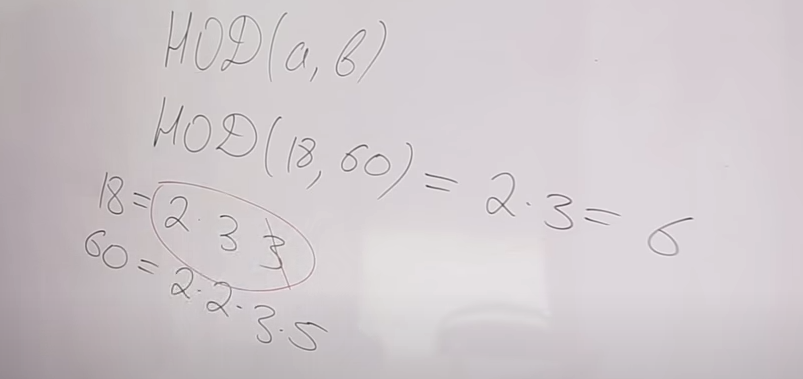 НОД(а, в)
НОД(18, 60) = 2·3 = 6
18 = 2· 3 3
60 = 2·2·3·5